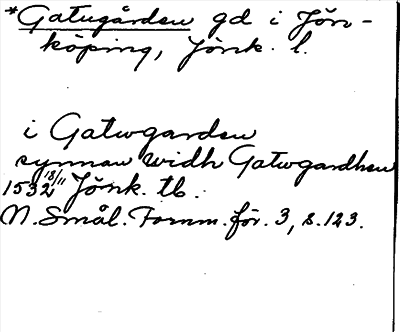 *Gatugården gd i Jön-
köping, Jönk. l.
i Gatwgarden
synnan widh Gatwgardhen
1532 18/11 Jönk. tb.
N. Smål. Fornm. för. 3, s. 123.